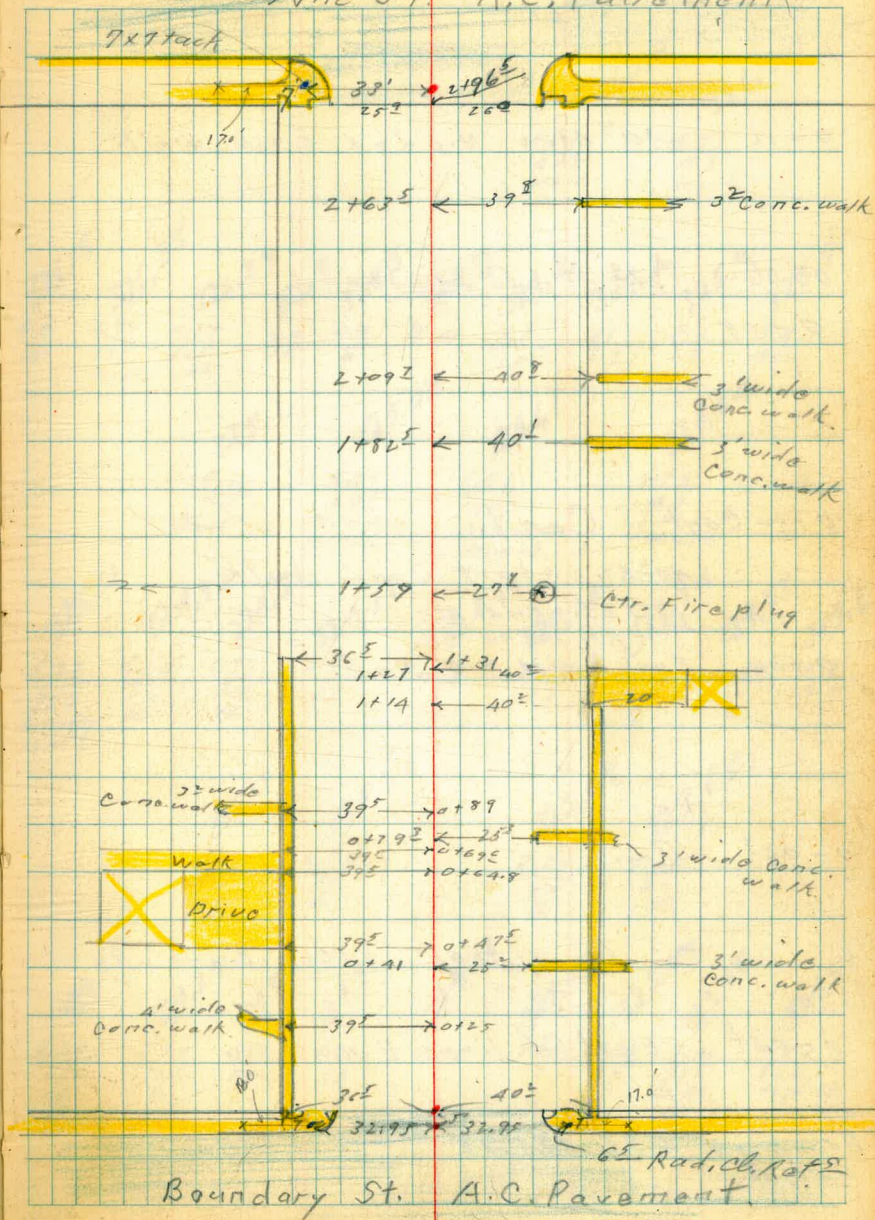 St. A.C. Pavement
7x7 tack
7' 33' 2+96⁵
25⁹ 26⁰
17.0'
2+63⁵ 39⁸ 3² Conc. walk
2+09⁷ 40⁸ 3' wide
Conc. walk.
1+82⁵ 40¹ 3' wide
Conc. walk
1+59 27⁸ Ctr. Fire plug
36⁵ 1+31
1+27 40²
1+14 40² 20
3² wide
Conc. walk 39⁵ 0+89
0+79³ 25³
Walk 39⁵ 0+69⁵ 3' wide Conc.
walk
39⁵ 0+64.8
Drive
39⁵ 0+47⁵
0+41 25² 3' wide
Conc. walk
4' wide
Conc. walk 39⁵ 0+25
36⁵ 40² 17.0'
32.95 32.95
6⁵ Rad. Cb. Ret⁵
Boundary St. A.C. Pavement